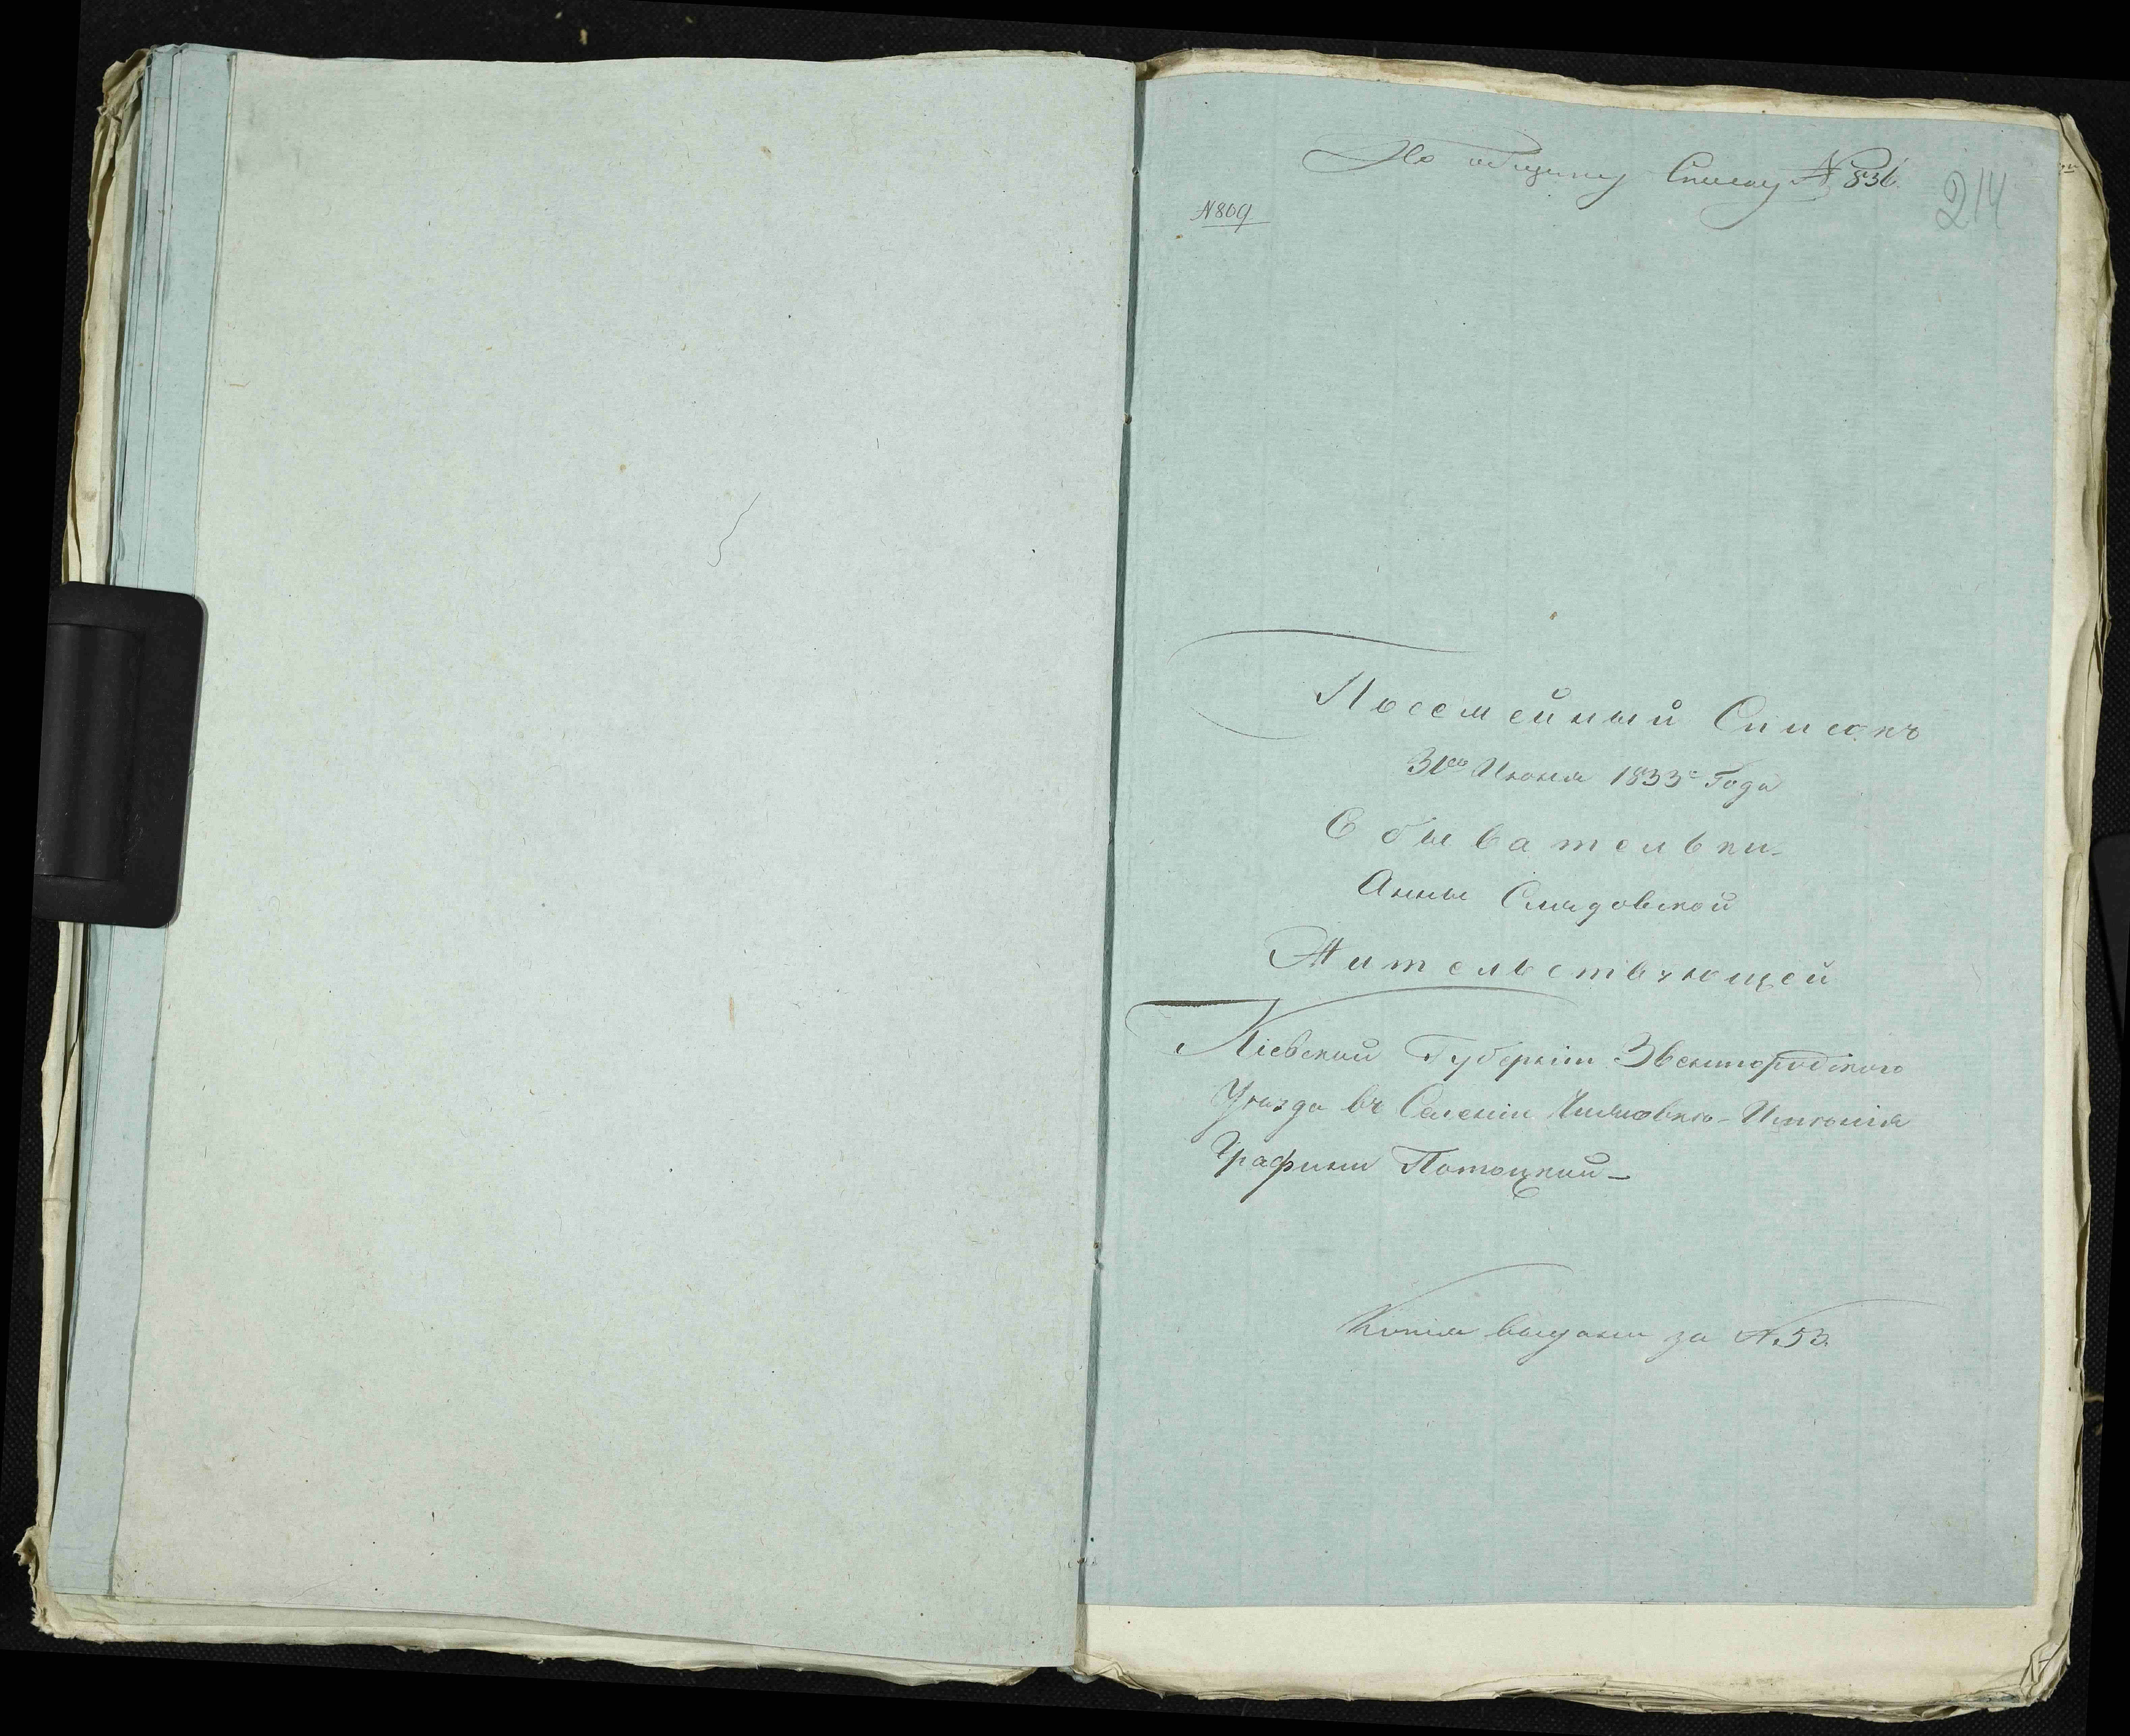 По общему Списку № 836.
214
№ 809
Посемейный Списокъ
30го Июня 1833го Года
Обывательки
Анны Смядовской
Жительствующей
Кіевской Губерніи Звенигородского
Уѣзда въ Селеніи Имѣнія
Графини Потоцкой
Копія выдана за № 53.